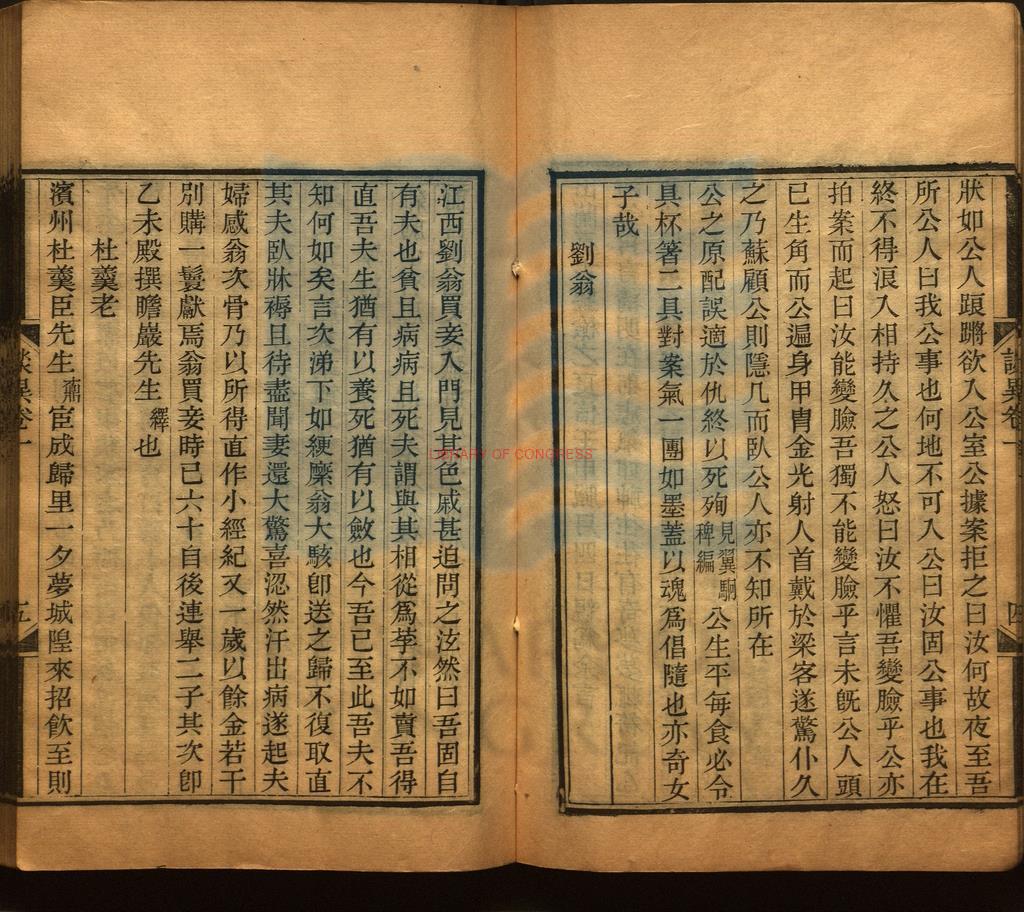 狀如公人踉蹡欲入公室公據案拒之曰汝何故夜至吾
所公人曰我公事也何地不可入公曰汝固公事也我在
終不得浪入相持久之公人怒曰汝不懼吾變臉乎公亦
拍案而起曰汝能變臉吾獨不能變臉乎言未旣公人頭
已生角而公遍身甲冑金光射人首戴於梁客遂驚仆久
之乃蘇顧公則隱几而臥公人亦不知所在
公之原配誤適於仇終以死殉見翼駉稗編公生平每食必令
具杯箸二具對案氣一團如墨蓋以魂爲倡隨也亦奇女
子哉
劉翁
江西劉翁買妾入門見其色戚甚迫問之泫然曰吾固自
有夫也貧且病病且死夫謂與其相從爲莩不如賣吾得
直吾夫生猶有以養死猶有以斂也今吾已至此吾夫不
知何如矣言次涕下如綆縻翁大駭卽送之歸不復取直
其夫臥牀褥且待盡聞妻還大驚喜涊然汗出病遂起夫
婦感翁次骨乃以所得直作小經紀又一歲以餘金若干
別購一鬟獻焉翁買妾時已六十自後連舉二子其次卽
乙未殿撰瞻巖先生繹也
杜羹老
濱州杜羹臣先生鼐宦成歸里一夕夢城隍來招飲至則
談異卷一
四
談異卷一
五
LIBRARY OF CONGRESS